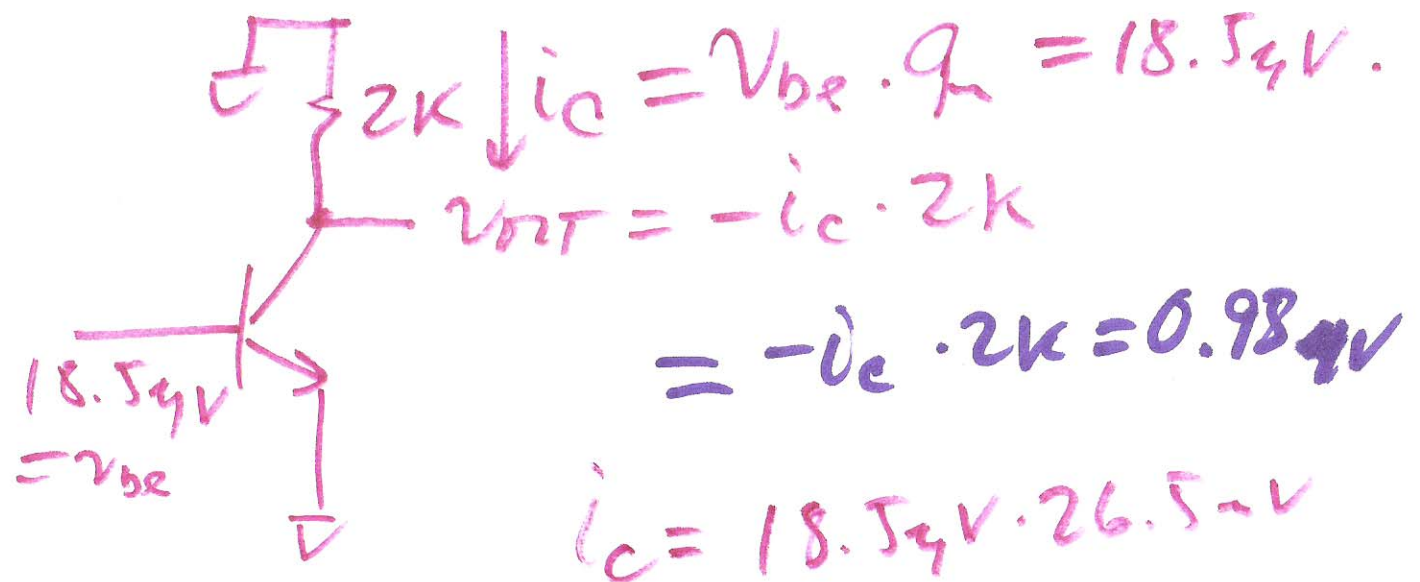 2K
ic = vbe · gm = 18.5μV.
vOUT = -ic · 2K
= -ic · 2K = 0.98
18.5μV
= vbe
ic = 18.5μV · 26.5mV